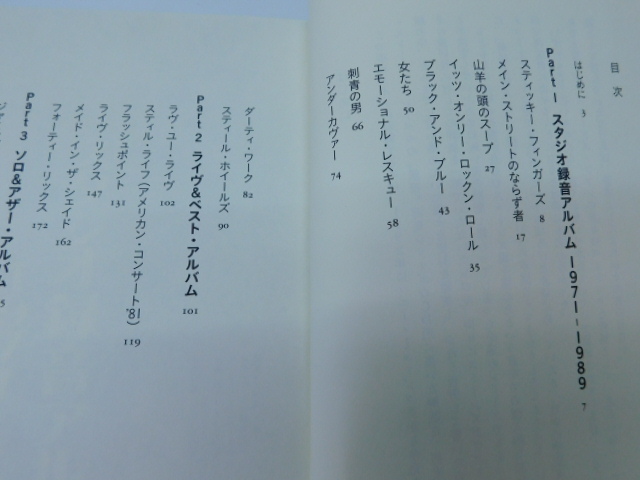 目次
はじめに 3
Part 1 スタジオ録音アルバム 1971-1989 7
スティッキー・フィンガーズ 8
メイン・ストリートのならず者 17
山羊の頭のスープ 27
イッツ・オンリー・ロックン・ロール 35
ブラック・アンド・ブルー 43
女たち 50
エモーショナル・レスキュー 58
刺青の男 66
アンダーカヴァー 74
ダーティ・ワーク 82
スティール・ホイールズ 90
Part 2 ライヴ&ベスト・アルバム 101
ラヴ・ユー・ライヴ 102
スティル・ライフ(アメリカン・コンサート'81) 119
フラッシュポイント 131
ライヴ・リックス 147
メイド・イン・ザ・シェイド 162
フォーティー・リックス 172
Part 3 ソロ&アザー・アルバム